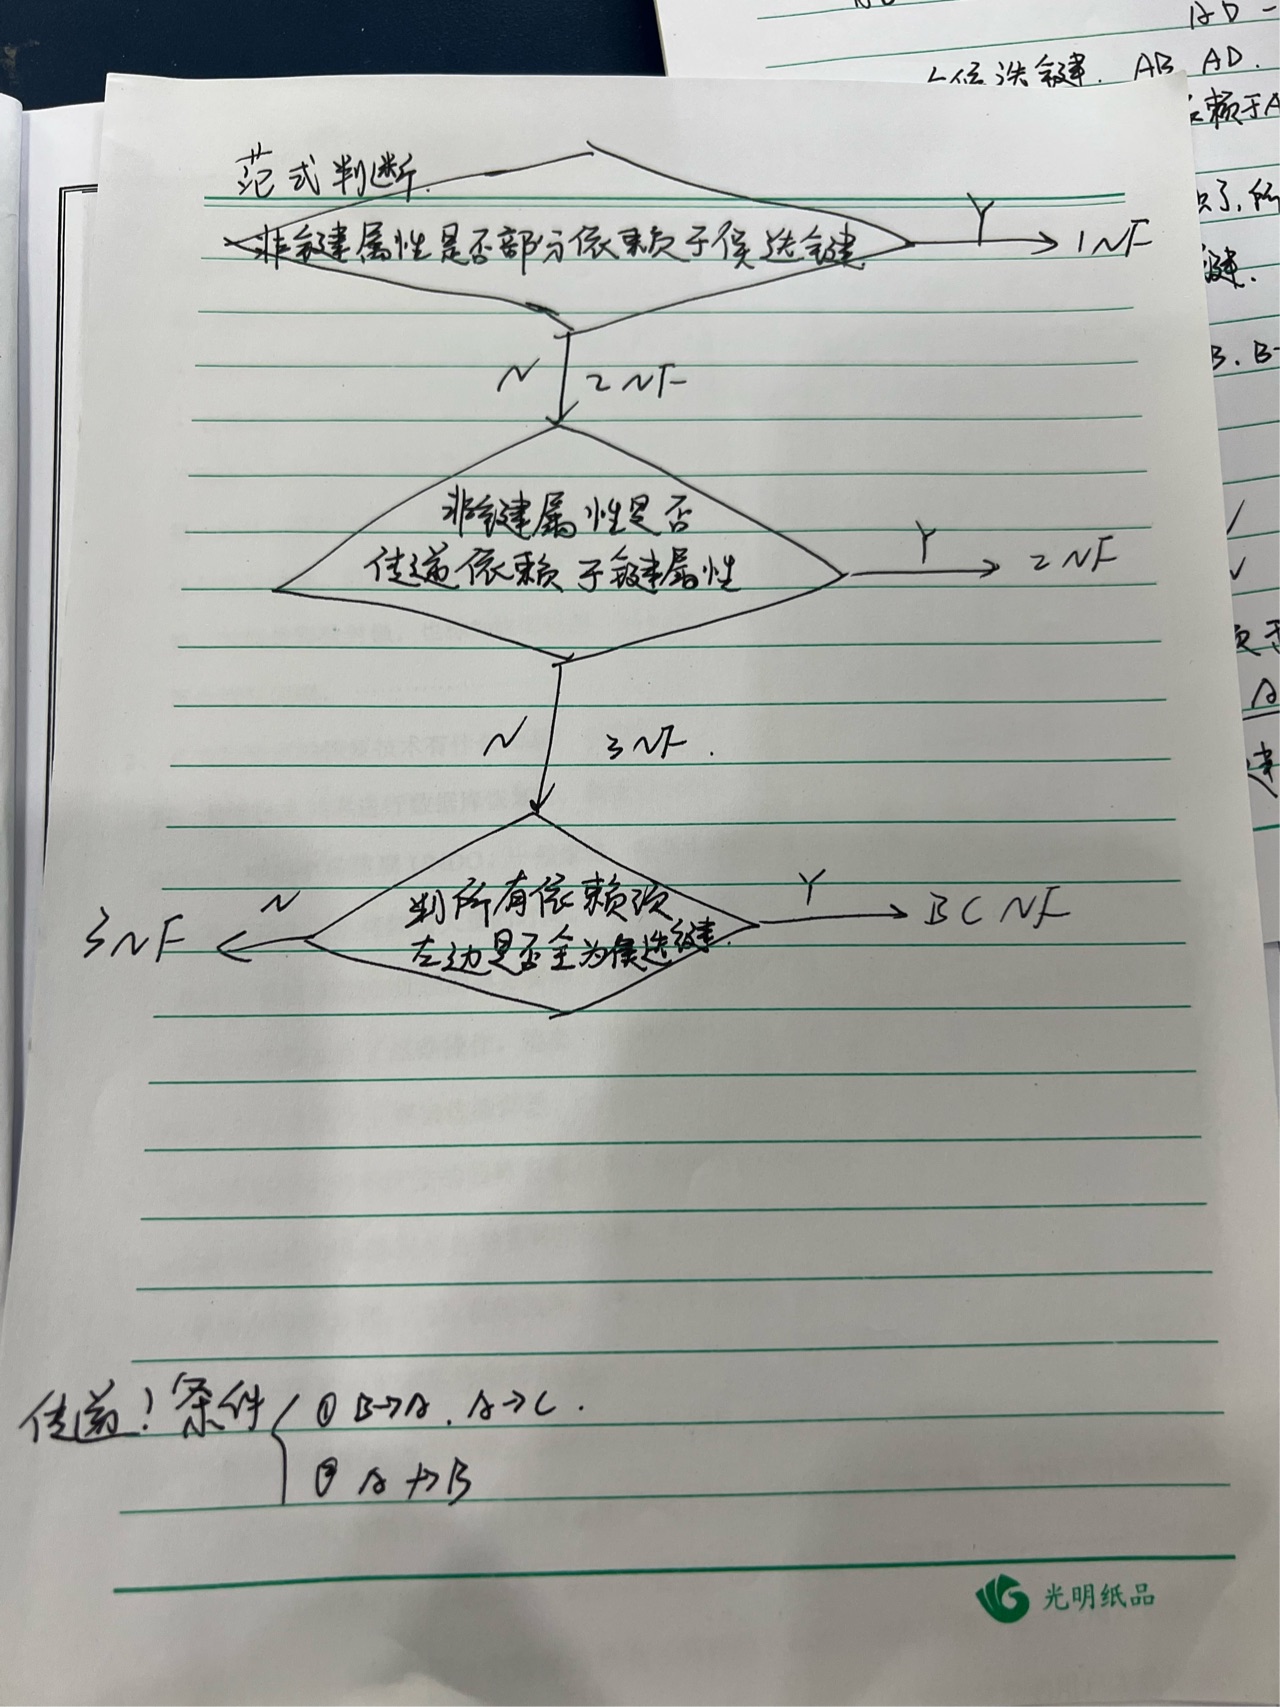 AD -
候选键. AB AD.
赖于A
范式判断.
非键属性是否部分依赖于候选键
Y
1NF
键.
B. B-
N
2NF
非键属性是否
传递依赖于键属性
Y
2NF
N
3NF.
判所有依赖项
左边是否全为候选键.
N
3NF
Y
BCNF
传递！条件
① B→A. A→C.
② A↛B
光明纸品